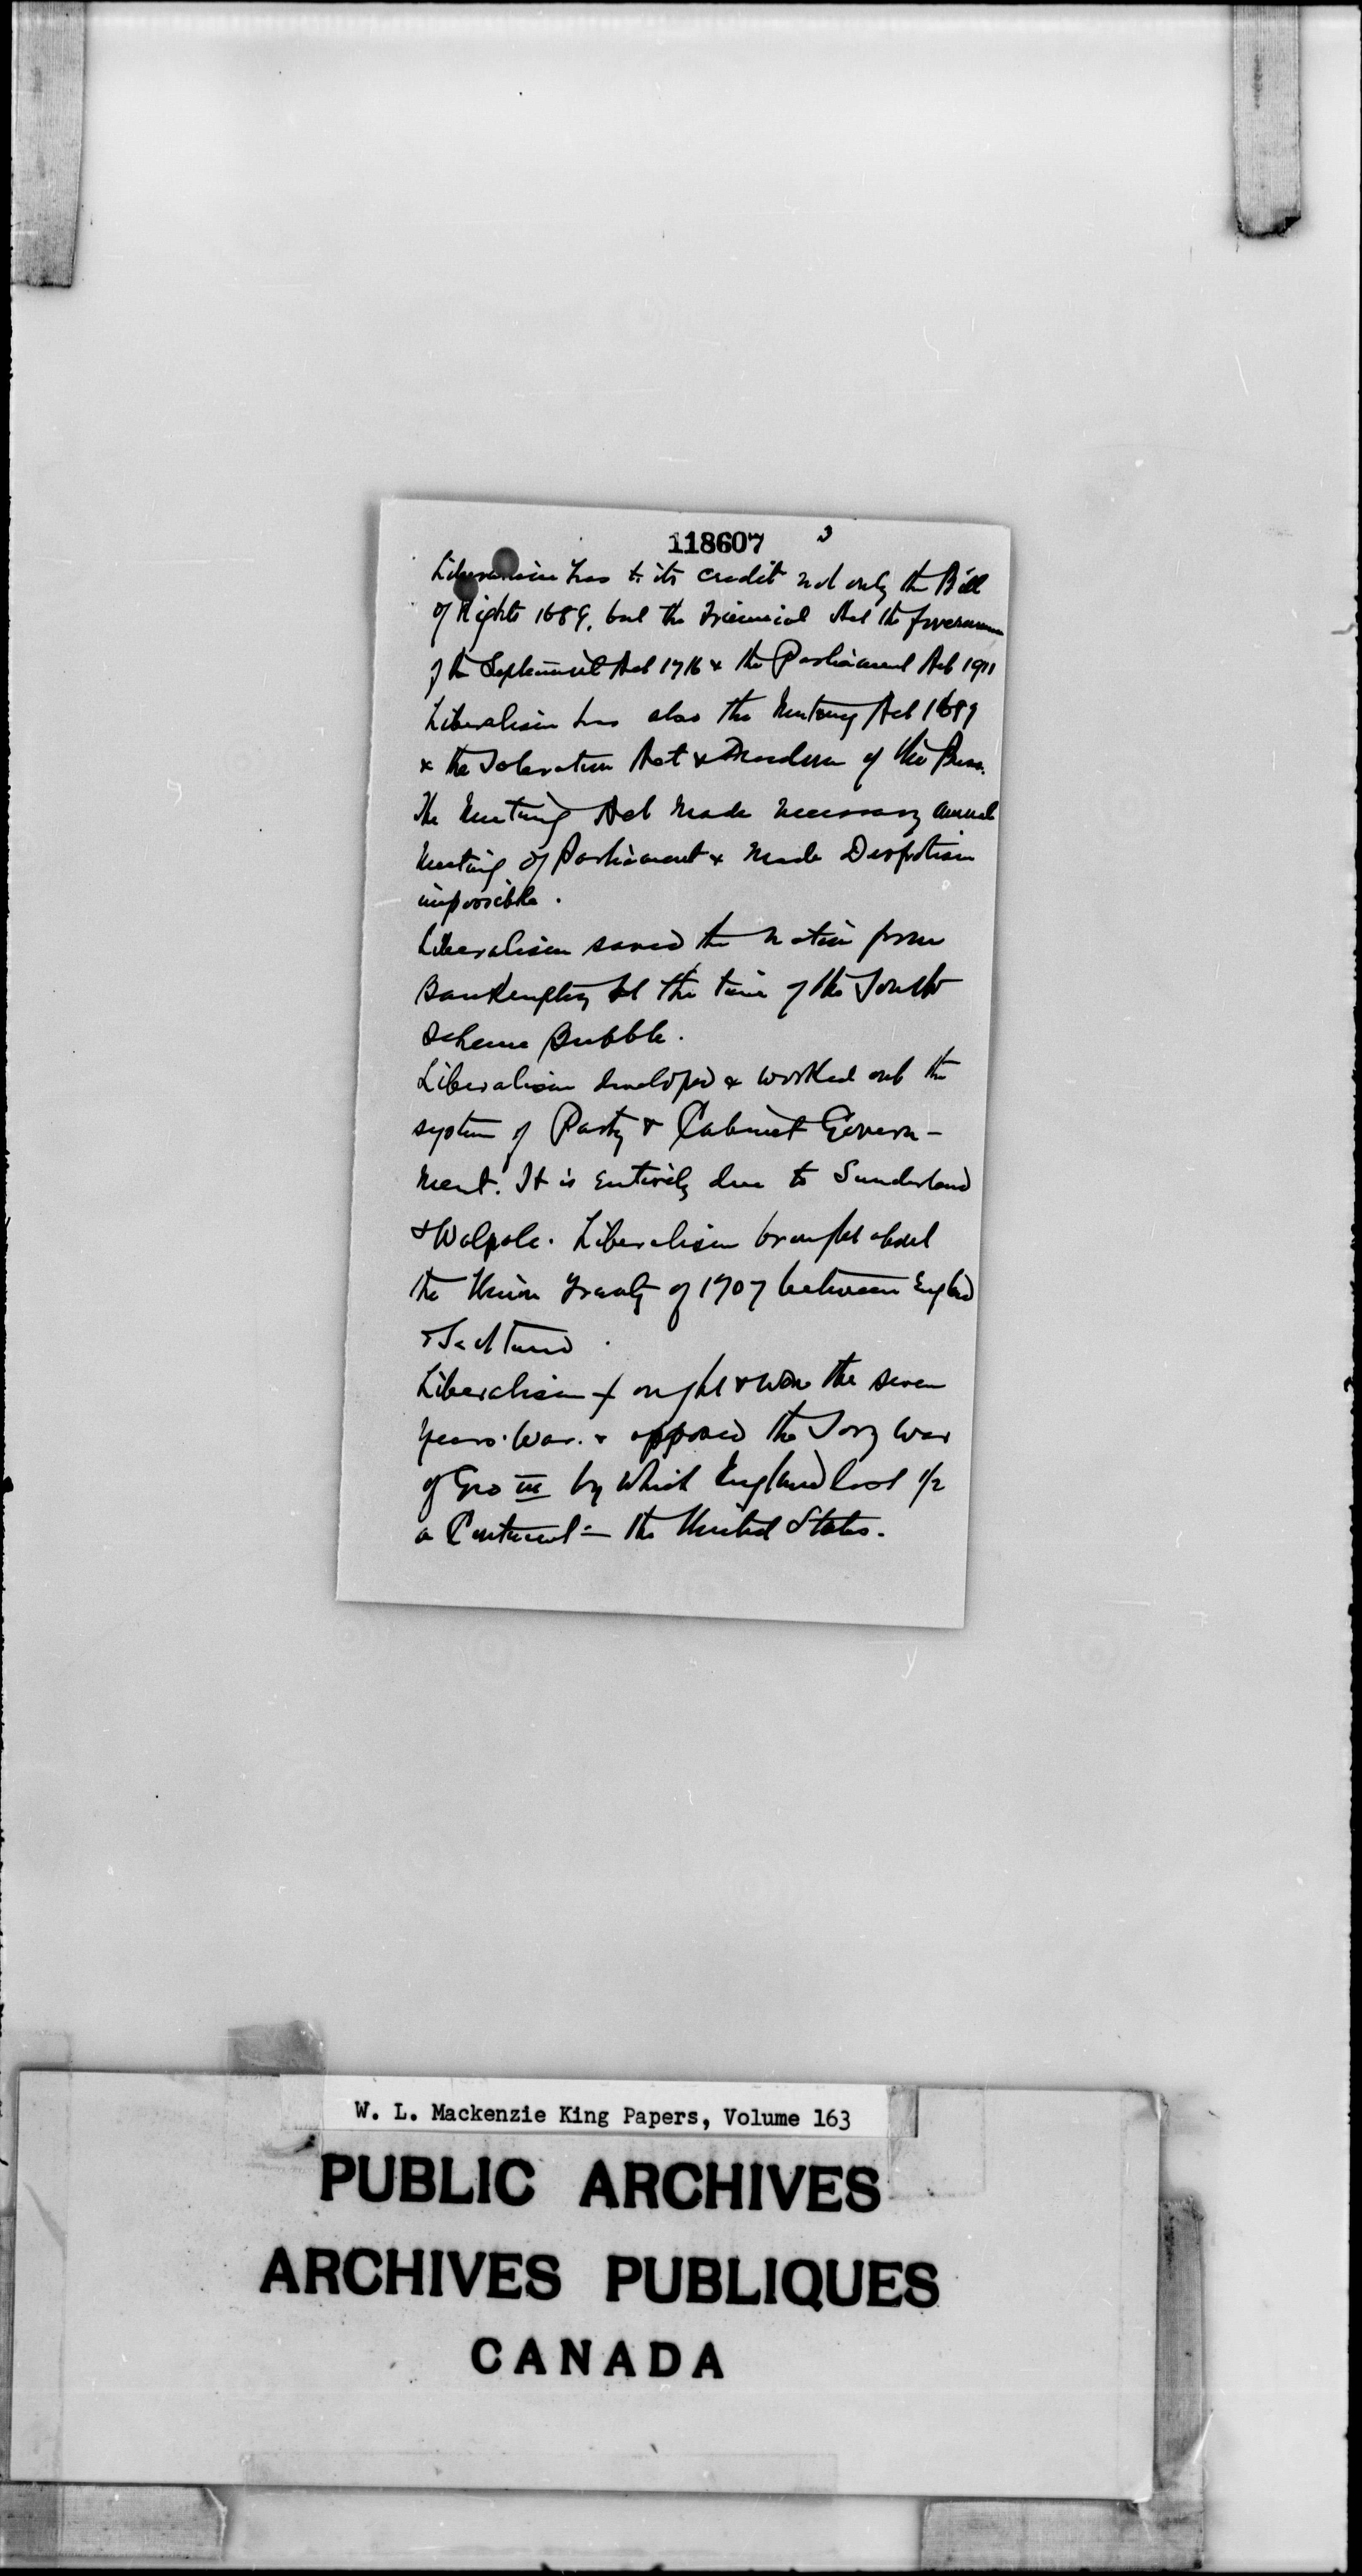 118607 3
Liberalism has to its credit not only the Bill
of Rights 1689, but the Triennial Act the forerunner
of the Septennial Act 1716 & the Parliament Act 1911
Liberalism has also the Mutiny Act 1689
& the Toleration Act & Freedom of the Press.
The Mutiny Act made necessary annual
meeting of Parliament & made Despotism
impossible.
Liberalism saved the nation from
Bankruptcy at the time of the South
Scheme Bubble.
Liberalism developed & worked out the
system of Party & Cabinet Govern-
ment. It is entirely due to Sunderland
& Walpole. Liberalism brought about
the Union Treaty of 1707 between England
& Scotland.
Liberalism fought & won the seven
years. War. & opposed the Tory War
of Geo III by which England lost 1/2
a Continent - the United States.
W. L. Mackenzie King Papers, Volume 163
PUBLIC ARCHIVES
ARCHIVES PUBLIQUES
CANADA